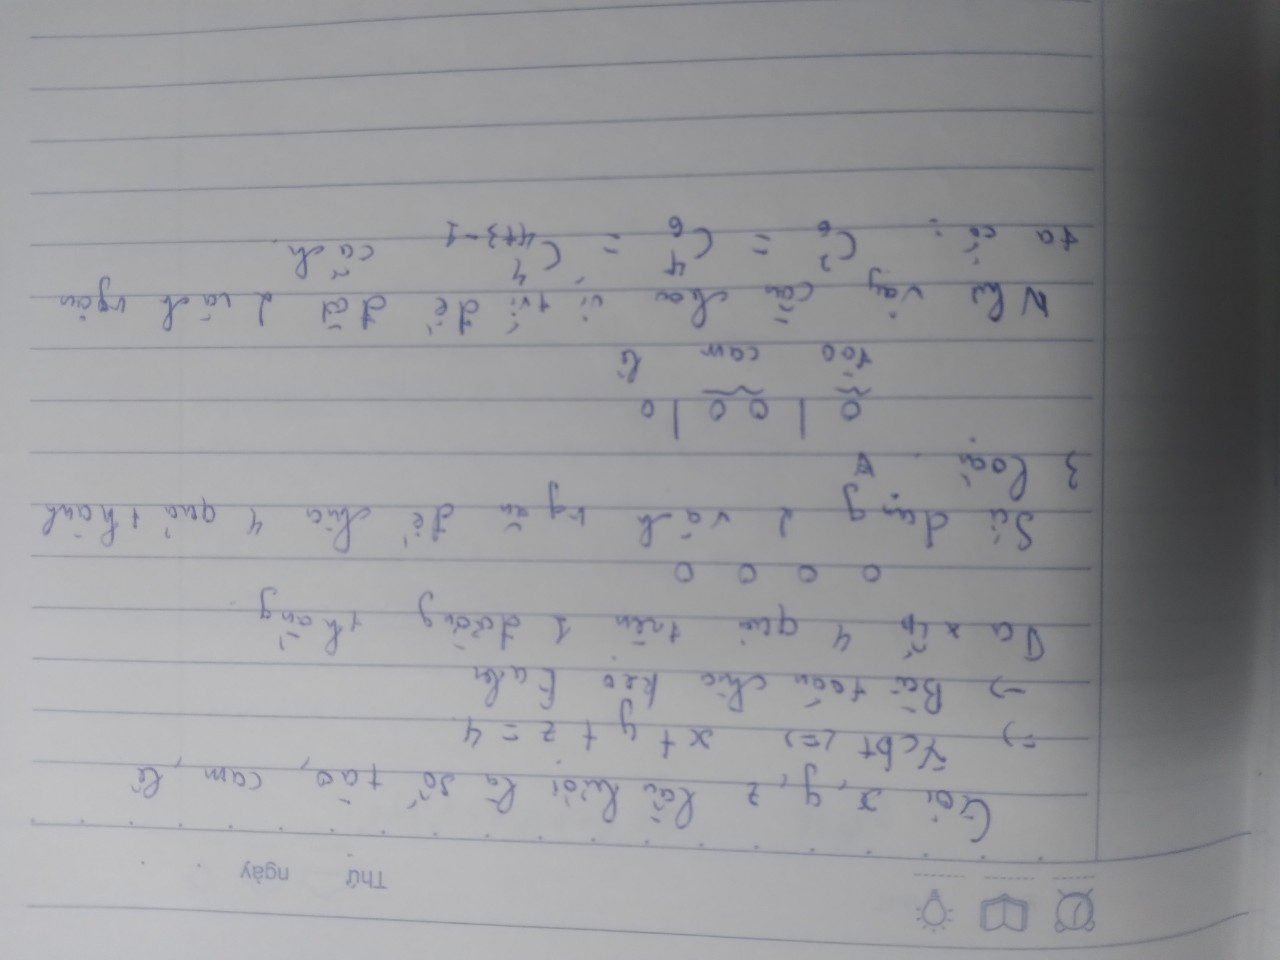 Thứ ngày
Gọi x, y, z lần lượt là số táo, cam, lê
=> Ycbt <=> x + y + z = 4
-> Bài toán chia kẹo Euler
Ta xếp 4 quả trên 1 đường thẳng
0 0 0 0
Sử dụng 2 vách ngăn để chia 4 quả thành
3 loại.
0 | 0 0 | 0
táo cam lê
Như vậy cần chọn vị trí để đặt 2 vách ngăn
ta có: C²₆ = C⁴₆ = C⁴₄₊₃₋₁ cách.